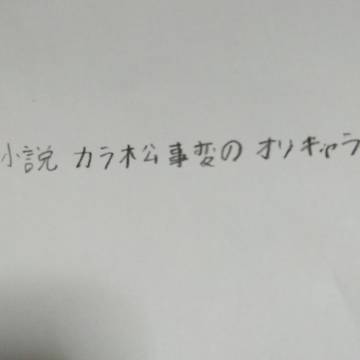 小説 カラ松事変の オリキャラ